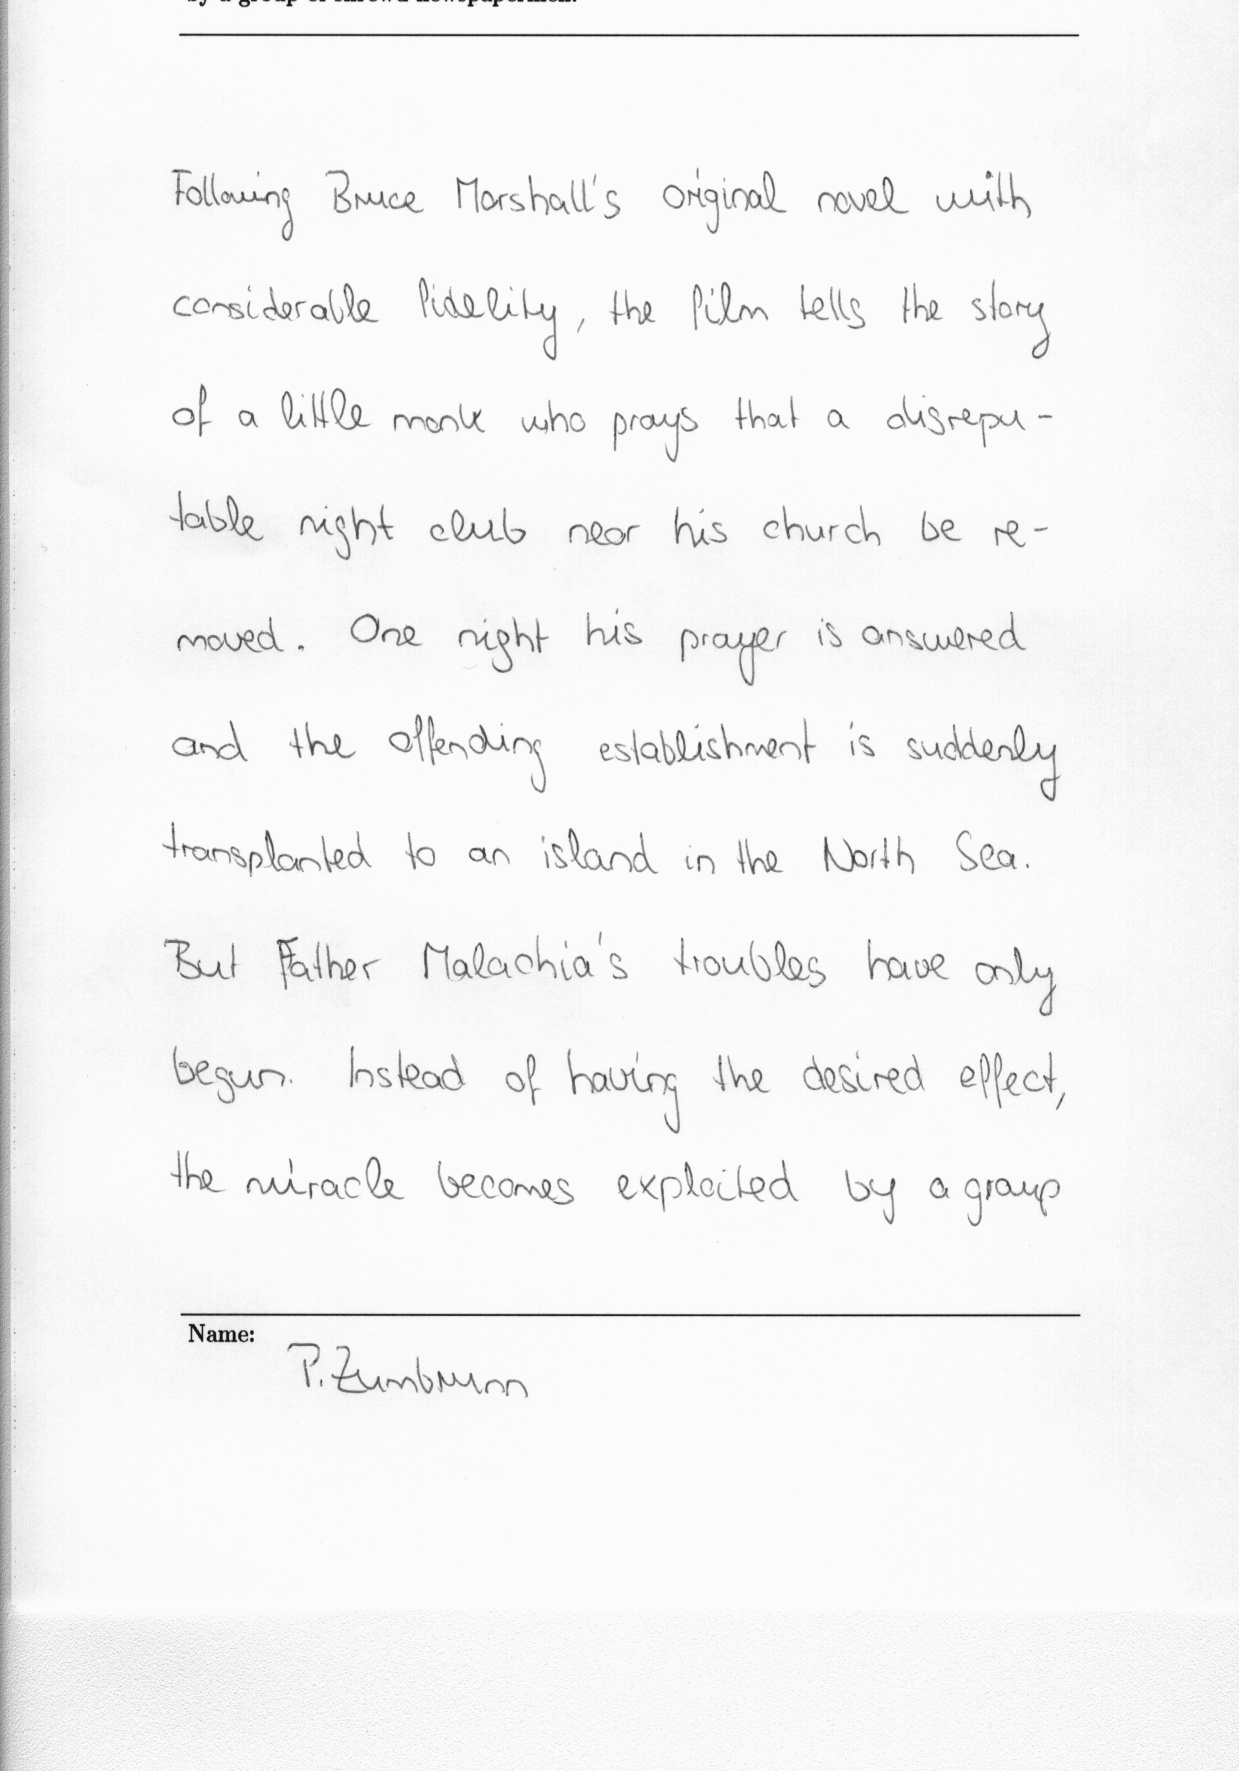 Following Bruce Marshall's original novel with
considerable fidelity, the film tells the story
of a little monk who prays that a disrepu-
table night club near his church be re-
moved. One night his prayer is answered
and the offending establishment is suddenly
transplanted to an island in the North Sea.
But Father Malachia's troubles have only
begun. Instead of having the desired effect,
the miracle becomes exploited by a group
Name:
P. Zumbrunn